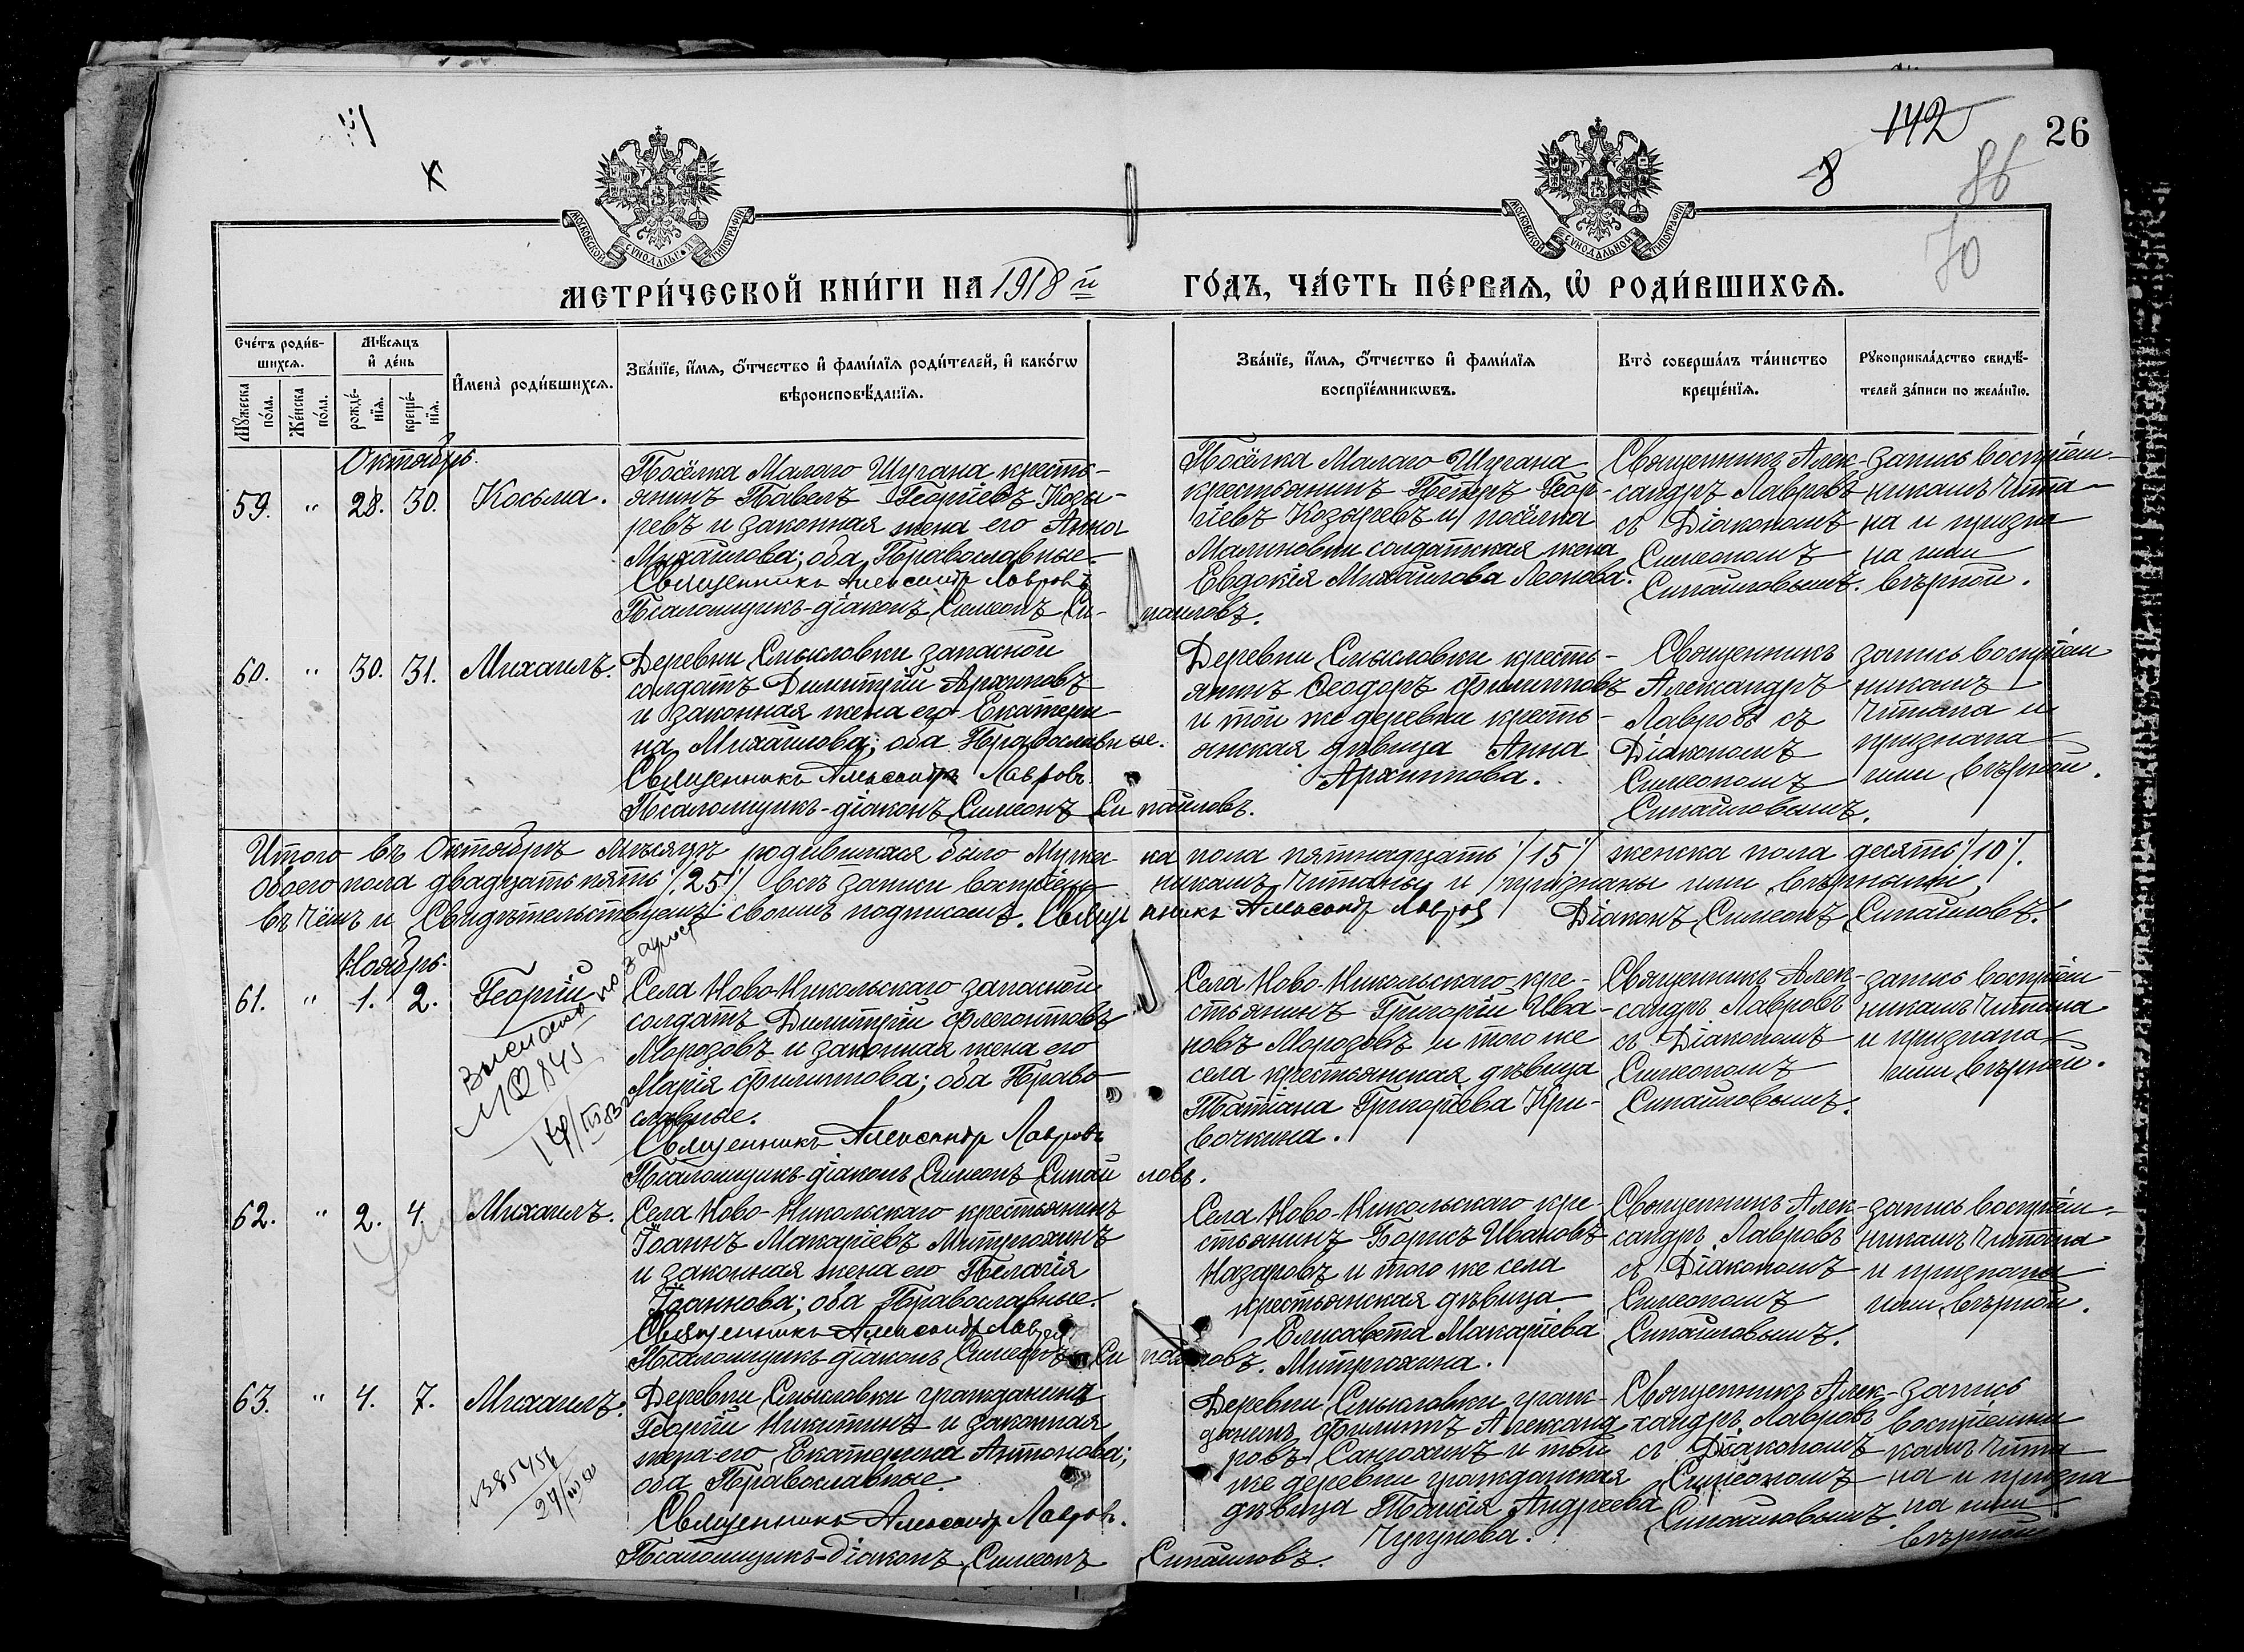 142
26
8
86
70
МОСКОВСКОЙ СѴНОДАЛЬНОЙ ТИПОГРАФІИ
МОСКОВСКОЙ СѴНОДАЛЬНОЙ ТИПОГРАФІИ
МЕТРИ́ЧЕСКОЙ КНИ́ГИ НА 1918й
ГО́ДЪ, ЧА́СТЬ ПЕ́РВАѦ, Ѡ҆ РОДИ́ВШИХСѦ.
Сче́тъ роди́в-
шихсѧ.
Мꙋ́жеска по́ла.
Же́нска по́ла.
Мѣ́сѧцъ
и҆ де́нь
рожде́-
нїѧ.
креще́-
нїѧ.
И҆мена̀ роди́вшихсѧ.
Зва́нїе, и҆́мѧ, ѻ҆́тчество и҆ фами́лїѧ роди́телей, и҆ како́гѡ
вѣроисповѣ́данїѧ.
Зва́нїе, и҆́мѧ, ѻ҆́тчество и҆ фами́лїѧ
воспрїе́мникѡвъ.
Кто̀ соверша́лъ та́инство
креще́нїѧ.
Рꙋкоприкла́дство свидѣ́-
телей за́писи по жела́нїю.
Октябрь.
59. " 28. 30. Косьма.
Посёлка Малаго Шугана кресть-
янинъ Павелъ Георгіевъ Козы-
ревъ и законная жена его Анна
Михайлова; оба Православные.
Священникъ Александръ Лавровъ
Псаломщикъ-діаконъ Симеонъ Си-
паиловъ.
Посёлка Малаго Шугана
крестьянинъ Петръ Геор-
гіевъ Козыревъ и посёлка
Малиновки солдатская жена
Евдокія Михайлова Леонова.
Священникъ Алек-
сандръ Лавровъ
съ Діакономъ
Симеономъ
Сипаиловымъ.
запись воспріем-
никамъ чита-
на и призна
на ими
вѣрной.
60. " 30. 31. Михаилъ.
Деревни Смысловки запасной
солдатъ Димитрій Архиповъ
и законная жена его Екатери-
на Михайлова; оба Православные.
Священникъ Александръ Лавровъ.
Псаломщикъ-діаконъ Симеонъ Сипаиловъ.
Деревни Смысловки кресть-
янинъ Ѳеодоръ Филипповъ
и той же деревни кресть-
янская дѣвица Анна
Архиппова.
Священникъ
Александръ
Лавровъ съ
Діакономъ
Симеономъ
Сипаиловымъ.
запись воспріем
никамъ
читана и
признана
ими вѣрной.
Итого въ Октябрѣ мѣсяцѣ родившихся было мужеска пола пятнадцать /15/ женска пола десять /10/.
Обоего пола двадцать пять /25/ всѣ записи воспріемникамъ читаны и признаны ими вѣрными,
въ чёмъ и свидѣтельствуемъ своимъ подписомъ. Священникъ Александръ Лавровъ Діаконъ Симеонъ Сипаиловъ.
Ноябрь.
61. " 1. 2. Георгій
№ 845
Села Ново-Никольскаго запасной
солдатъ Димитрій Флегонтовъ
Морозовъ и законная жена его
Марія Филиппова; оба Право-
славные.
Священникъ Александръ Лавровъ
Псаломщикъ-діаконъ Симеонъ Сипаиловъ.
Села Ново-Никольскаго кре-
стьянинъ Григорій Ива-
новъ Морозовъ и того же
села крестьянская дѣвица
Татіана Григоріева Кри-
вочкина.
Священникъ Алек-
сандръ Лавровъ
съ Діакономъ
Симеономъ
Сипаиловымъ.
запись воспріем-
никамъ читана
и признана
ими вѣрной.
62. " 2. 4. Михаилъ.
Села Ново-Никольскаго крестьянинъ
Іоаннъ Макаріевъ Митрюхинъ
и законная жена его Пелагія
Іоаннова; оба Православные.
Священникъ Александръ Лавровъ
Псаломщикъ-діаконъ Симеонъ Сипаиловъ.
Села Ново-Никольскаго кре-
стьянинъ Борисъ Ивановъ
Назаровъ и того же села
крестьянская дѣвица
Елисавета Макаріева
Митрюхина.
Священникъ Алек-
сандръ Лавровъ
съ Діакономъ
Симеономъ
Сипаиловымъ.
запись воспріем-
никамъ читана
и признана
ими вѣрной.
63. " 4. 7. Михаилъ.
Деревни Смысловки гражданинъ
Георгій Никитинъ и законная
жена его Екатерина Антонова;
оба Православные.
Священникъ Александръ Лавровъ.
Псаломщикъ-діаконъ Симеонъ Сипаиловъ.
Деревни Смысловки граж-
данинъ Филиппъ Александ
ровъ Санюхинъ и той
же деревни гражданская
дѣвица Таисія Андреева
Чугунова.
Священникъ Алек-
сандръ Лавровъ
съ Діакономъ
Симеономъ
Сипаиловымъ.
запись
воспріемни
камъ чита
на и призна
на ими
вѣрной